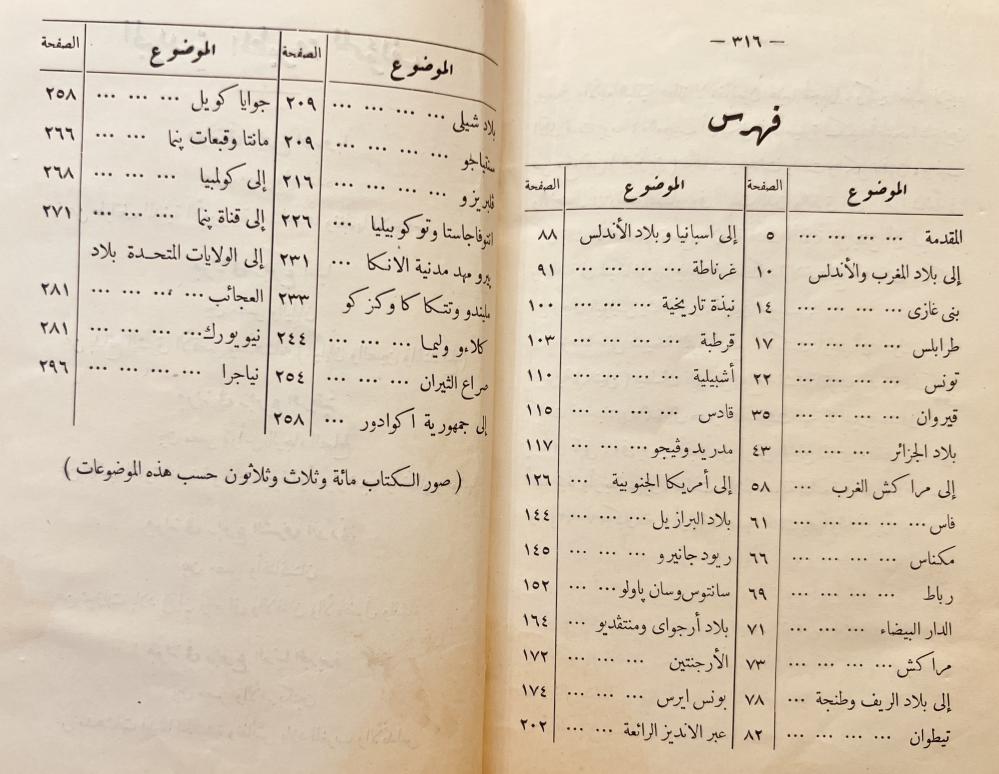 — ٣١٦ —
فهرس
الموضوع الصفحة
المقدمة ... ... ... ... ٥
إلى بلاد المغرب والأندلس ١٠
بنى غازى ... ... ... ... ١٤
طرابلس ... ... ... ... ١٧
تونس ... ... ... ... ٢٢
قيروان ... ... ... ... ٣٥
بلاد الجزائر ... ... ... ٤٣
إلى مراكش الغرب ... ٥٨
فاس ... ... ... ... ... ٦١
مكناس ... ... ... ... ٦٦
رباط ... ... ... ... ٦٩
الدار البيضاء ... ... ... ٧١
مراكش ... ... ... ... ٧٣
إلى بلاد الريف وطنجة ... ٧٨
تيطوان ... ... ... ... ٨٢
الموضوع الصفحة
إلى اسبانيا وبلاد الأندلس ٨٨
غرناطة ... ... ... ... ٩١
نبذة تاريخية ... ... ... ١٠٠
قرطبة ... ... ... ... ١٠٣
أشبيلية ... ... ... ... ١١٠
قادس ... ... ... ... ١١٥
مدريد وڤيجو ... ... ... ١١٧
إلى أمريكا الجنوبية ... ١٢٦
بلاد البرازيل ... ... ... ١٤٤
ريودجانيرو ... ... ... ١٤٥
سانتوس وسان پاولو ... ١٥٢
بلاد أرجواى ومنتڤديو ... ١٦٤
الأرجنتين ... ... ... ١٧٢
بونس ايرس ... ... ... ١٧٤
عبر الانديز الرائعة ... ٢٠٢
الموضوع الصفحة
بلاد شيلى ... ... ... ٢٠٩
سنتياجو ... ... ... ... ٢٠٩
ڤلبريزو ... ... ... ... ٢١٦
انتوفاجاستا وتوكوبيليا ... ٢٢٦
پيرو مهد مدنية الانكا ... ٢٣١
مليندو وتتكاكا وكزكو ٢٣٣
كلاءو وليما ... ... ... ... ٢٤٤
صراع الثيران ... ... ... ٢٥٤
إلى جمهورية اكوادور ... ٢٥٨
الموضوع الصفحة
جوايا كويل ... ... ... ٢٥٨
مانتا وقبعات پنما ... ... ٢٦٦
إلى كولمبيا ... ... ... ٢٦٨
إلى قناة پنما ... ... ... ٢٧١
إلى الولايات المتحدة بلاد
العجائب ... ... ... ... ٢٨١
نيويورك ... ... ... ... ٢٨١
نياجرا ... ... ... ... ٢٩٦
( صور الكتاب مائة وثلاث وثلاثون حسب هذه الموضوعات )